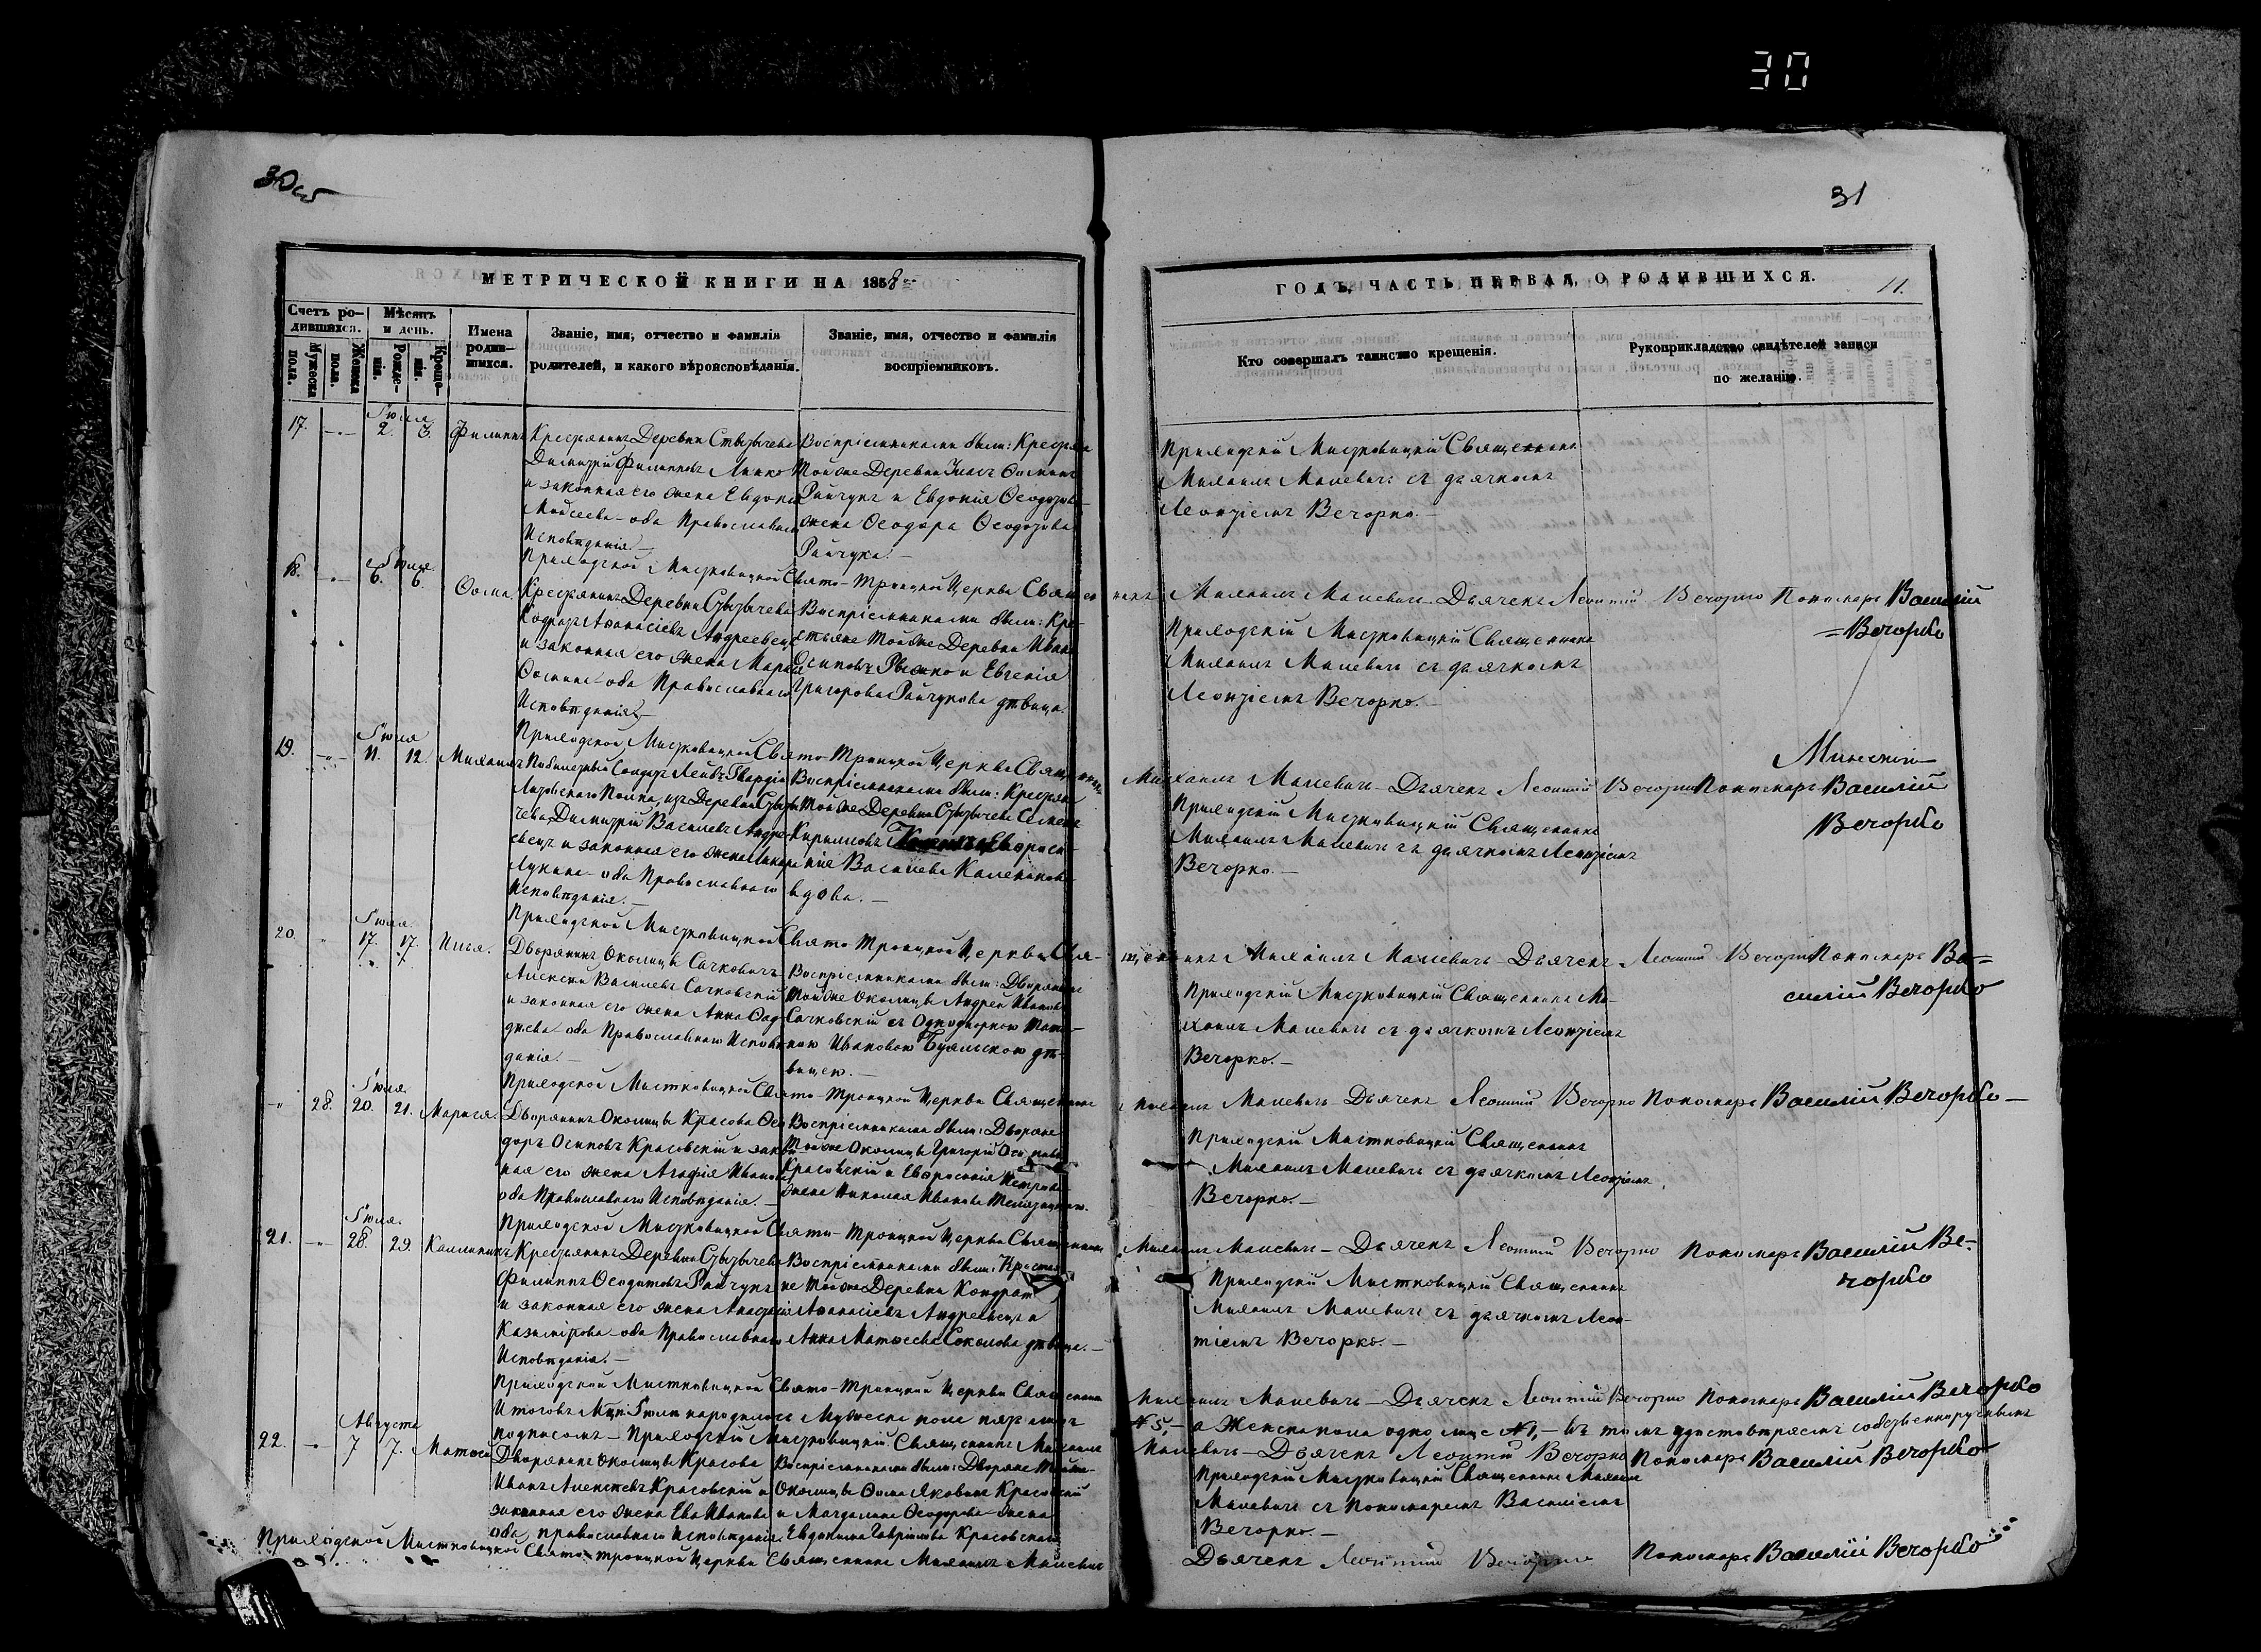 30
30об
31
МЕТРИЧЕСКОЙ КНИГИ НА 1858
ГОДЪ, ЧАСТЬ ПЕРВАЯ, О РОДИВШИХСЯ.
11.
Счетъ родившихся.
Мужеска пола.
Женска пола.
Мѣсяцъ и день.
Рожденія.
Крещенія.
Имена родившихся.
Званіе, имя, отчество и фамилія
родителей, и какого вѣроисповѣданія.
Званіе, имя, отчество и фамилія
воспріемниковъ.
Кто совершалъ таинство крещенія.
Рукоприкладство свидѣтелей записи
по желанію.
17.
Іюля
2. 3.
Филиппъ
Крестьянинъ Деревни
Димитрій Филипповъ Линко
и законная его жена Евдокія
Моисеева - оба Православнаго
Исповѣданія. —
Воспріемниками были: Крестьяне
Той же Деревни Ѳоминъ
Райчукъ и Евдокія
жена Ѳеодора
Райчука. —
Приходскій Мистковицкій Священникъ
Михаилъ Малевичъ съ дьячкомъ
Леонтіемъ Вечорко. —
Приходской Мистковицкой Свято-Троицкой Церкви Священникъ Михаилъ Малевичъ — Дьячекъ Леонтій Вечорко Пономарь Василій
= Вечорко
18.
Іюля.
6. 6.
Ѳома.
Крестьянинъ Деревни
Кодратъ Аѳанасіевъ Андреевецъ
и законная его жена Марія
Ѳомина - оба Православнаго
Исповѣданія. —
Воспріемниками были: Кре-
стьяне той же Деревни Иванъ
Осиповъ и Евгенія
Григорова Райчукова дѣвица.
Приходскій Мистковицкій Священникъ
Михаилъ Малевичъ съ дьячкомъ
Леонтіемъ Вечорко. —
Приходской Мистковицкой Свято-Троицкой Церкви Священникъ Михаилъ Малевичъ — Дьячекъ Леонтій Вечорко Пономарь Василій
Вечорко
19.
Іюля
11. 12.
Михаилъ
Лейбъ Гвардіи
Литовскаго Полка, изъ Деревни
Димитрій Василевъ Андре-
евецъ и законная его жена
Лукина - оба Православнаго
Исповѣданія. —
Воспріемниками были: Крестьяне
Той же Деревни
Кирилловъ
Василева
вдова. —
Приходскій Мистковицкій Священникъ
Михаилъ Малевичъ съ дьячкомъ Леонтіемъ
Вечорко. —
Приходской Мистковицкой Свято-Троицкой Церкви Священникъ Михаилъ Малевичъ — Дьячекъ Леонтій Вечорко Пономарь Ва=
силій Вечорко
20.
Іюля.
17. 17.
Илья.
Дворянинъ Околицы Сачковичъ
Алексѣй Василевъ Сачковскій
и законная его жена Анна Ѳад-
деева - оба Православнаго Исповѣ-
данія. —
Воспріемниками были: Дворянинъ
Той же Околицы Андрей Ивановъ
Сачковскій съ Однодворкою
Ивановою дѣ-
вицею. —
Приходскій Мистковицкій Священникъ Ми-
хаилъ Малевичъ съ дьячкомъ Леонтіемъ
Вечорко. —
Приходской Мистковицкой Свято-Троицкой Церкви Священникъ Михаилъ Малевичъ — Дьячекъ Леонтій Вечорко Пономарь Василій Вечорко —
28.
Іюля
20. 21.
Марися.
Дворянинъ Околицы Красова Ѳео-
доръ Осиповъ Красовскій и закон-
ная его жена Агафія Иванова
оба Православнаго Исповѣданія. —
Воспріемниками были: Дворяне
Той же Околицы Григорій
Красовскій и Евфросинія Петрова
жена Николая Иванова
Приходскій Мистковицкій Священникъ
Михаилъ Малевичъ съ дьячкомъ Леонтіемъ
Вечорко. —
Приходской Мистковицкой Свято-Троицкой Церкви Священникъ Михаилъ Малевичъ — Дьячекъ Леонтій Вечорко Пономарь Василій Ве-
чорко
21.
Іюля.
28. 29.
Каллиникъ
Крестьянинъ Деревни
Филиппъ Райчукъ
и законная его жена
Казимірова - оба Православнаго
Исповѣданія. —
Воспріемниками были: Крестья-
не той же Деревни Кондратъ
Аѳанасіевъ Андреевецъ и
Анна Матѳеева Соколова дѣвица. —
Приходскій Мистковицкій Священникъ
Михаилъ Малевичъ съ дьячкомъ Леон-
тіемъ Вечорко. —
Приходской Мистковицкой Свято-Троицкой Церкви Священникъ Михаилъ Малевичъ — Дьячекъ Леонтій Вечорко Пономарь Василій Вечорко
Итого въ Іюлѣ народилось Мужеска пола пять № 5, — а Женска пола одно лице № 1, — въ томъ удостовѣряемъ собственноручнымъ
подписомъ — Приходскій Мистковицкій Священникъ Михаилъ Малевичъ — Дьячекъ Леонтій Вечорко Пономарь Василій Вечорко
22.
Августа
7 7.
Матѳей
Дворянинъ Околицы Красова
Иванъ Алексѣевъ Красовскій и
законная его жена Ева Иванова
оба православнаго Исповѣданія
Воспріемниками были: Дворяне той же
Околицы Ѳома Яковинъ Красовскій
и Магдалина Ѳеодорова - жена
Евдокима Гавріилова Красовскаго
Приходскій Мистковицкій Священникъ Михаилъ
Малевичъ съ Пономаремъ Василіемъ
Вечорко. —
Приходской Мистковицкой Свято-троицкой Церкви Священникъ Михаилъ Малевичъ Дьячекъ Леонтій Вечорко Пономарь Василій Вечорко